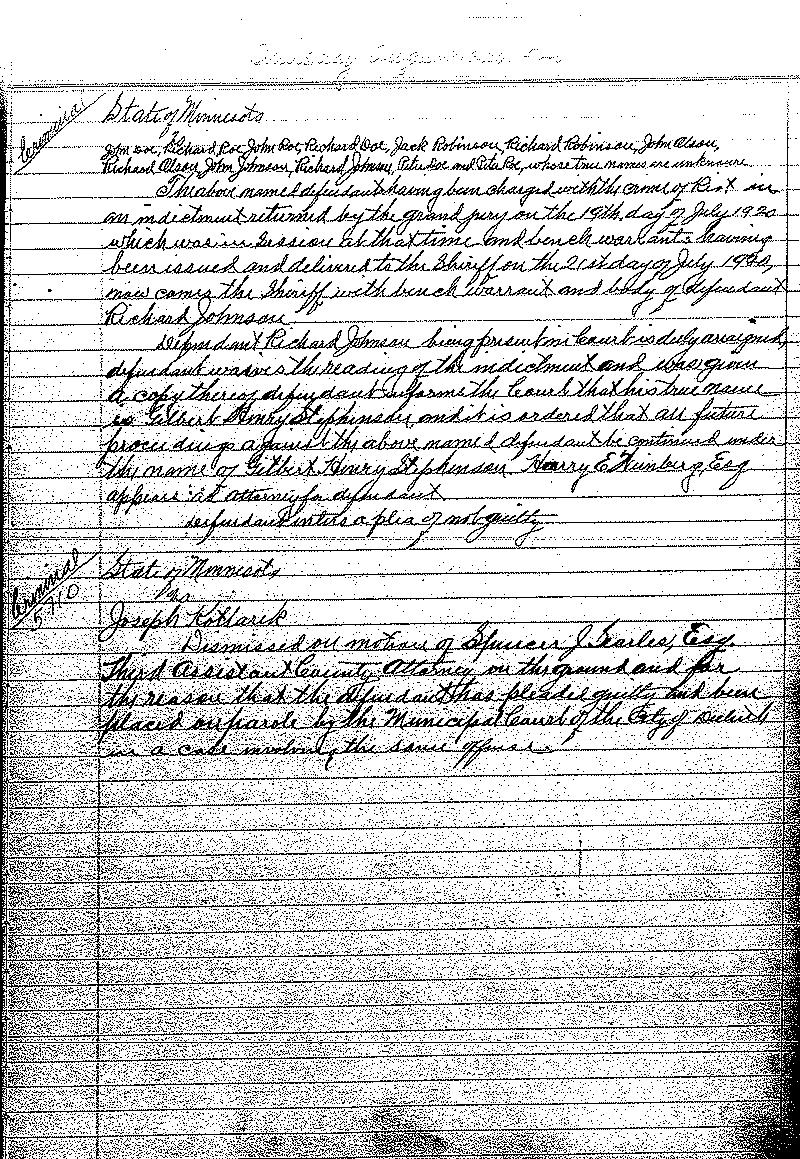 Criminal
State of Minnesota
vs
John Doe, Richard Roe, John Roe, Richard Doe, Jack Robinson, Richard Robinson, John Olson,
Richard Olson, John Johnson, Richard Johnson, Peter Doe and Peter Roe, whose true names are unknown
The above named defendants having been charged with the crime of Riot in
an indictment returned by the grand jury on the 19th day of July 1920
which was in Session at that time and bench warrants having
been issued and delivered to the Sheriff on the 21st day of July 1920,
now comes the Sheriff with bench warrant and body of defendant
Richard Johnson.
Defendant Richard Johnson being present in Court is duly arraigned,
defendant waives the reading of the indictment and was given
a copy thereof defendant informs the Court that his true name
is Gilbert Henry Stephenson and it is ordered that all future
proceedings against the above named defendant be continued under
the name of Gilbert Henry Stephenson Harry E Weinberg, Esq
appears as attorney for defendant
Defendant enters a plea of not guilty
Criminal
5710
State of Minnesota
vs
Joseph Kotlarek
Dismissed on motion of Spencer J. Searles, Esq.
Third Assistant County Attorney on the ground and for
the reason that the defendant has pleaded guilty and been
placed on parole by the Municipal Court of the City of Duluth
in a case involving the same offense.